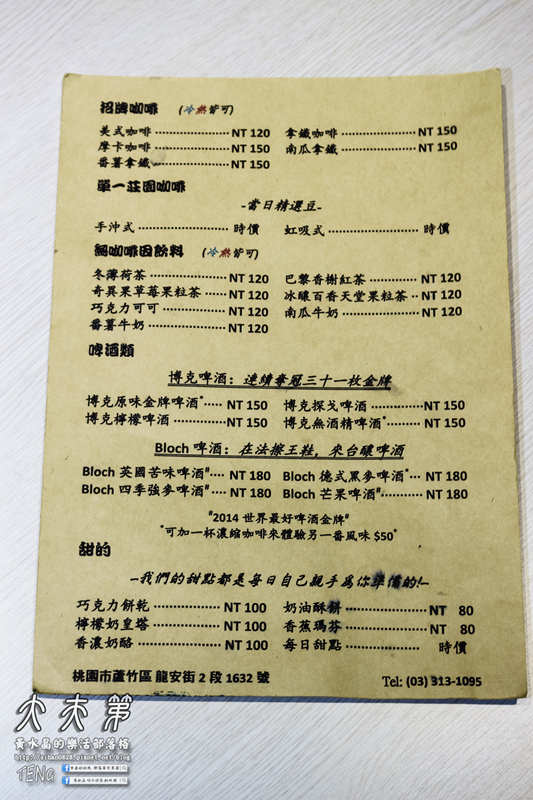 招牌咖啡 (冷熱皆可)
美式咖啡 ················ NT 120 拿鐵咖啡 ················ NT 150
摩卡咖啡 ················ NT 150 南瓜拿鐵 ················ NT 150
番薯拿鐵 ················ NT 150
單一莊園咖啡
-當日精選豆-
手沖式 ···················· 時價 虹吸式 ···················· 時價
無咖啡因飲料 (冷熱皆可)
冬薄荷茶 ················ NT 120 巴黎香榭紅茶 ············ NT 120
奇異果草莓果粒茶 ····· NT 120 冰釀百香天堂果粒茶 ·· NT 120
巧克力可可 ·············· NT 120 南瓜牛奶 ················ NT 120
番薯牛奶 ················ NT 120
啤酒類
博克啤酒：連續奪冠三十一枚金牌
博克原味金牌啤酒*····· NT 150 博克探戈啤酒 ············NT 150
博克檸檬啤酒 ············ NT 150 博克無酒精啤酒*········· NT 150
Bloch 啤酒：在法擦王鞋，來台釀啤酒
Bloch 英國苦味啤酒#···· NT 180 Bloch 德式黑麥啤酒*··· NT 180
Bloch 四季強麥啤酒#···· NT 180 Bloch 芒果啤酒#·········· NT 180
#2014 世界最好啤酒金牌#
*可加一杯濃縮咖啡來體驗另一番風味 $50*
甜的
–我們的甜點都是每日自己親手為你準備的!–
巧克力餅乾 ·············· NT 100 奶油酥餅 ················NT 80
檸檬奶皇塔 ·············· NT 100 香蕉瑪芬 ················ NT 80
香濃奶酪 ················ NT 100 每日甜點 ················ 時價
桃園市蘆竹區 龍安街 2 段 1632 號 Tel: (03) 313-1095
大夫第
黃水晶的樂活部落格
http://zihan0828.pixnet.net/blog
TENG